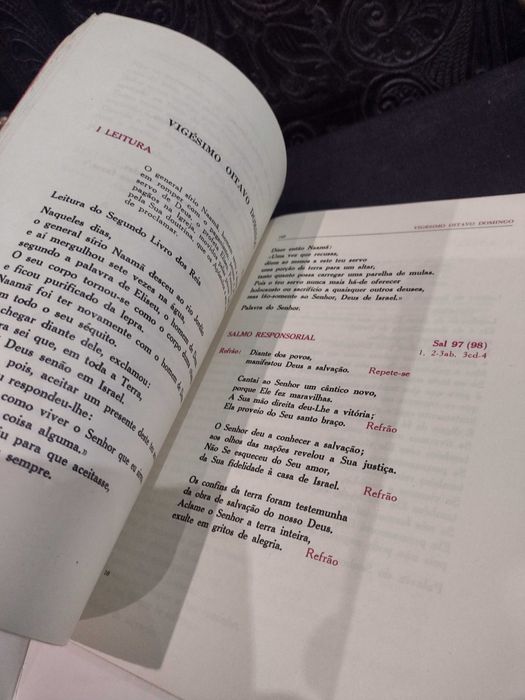 VIGÉSIMO OITAVO
I LEITURA
O general sírio Naamã
em romper com o
servo de Deus, o
pagãos na Igreja,
pela Sua doutrina
de proclamar.
Leitura do Segundo Livro dos Reis
Naqueles dias,
o general sírio Naamã desceu ao rio
e aí mergulhou sete vezes na água,
segundo a palavra de Eliseu, o homem de
O seu corpo tornou-se como o corpo
e ficou purificado da lepra.
Naamã foi ter novamente com o homem de
m todo o seu séquito.
chegar diante dele, exclamou:
ra sei que, em toda a Terra,
Deus senão em Israel.
pois, aceitar um presente deste
u respondeu-lhe:
como viver o Senhor que eu
coisa alguma.»
u para que aceitasse,
sempre.
VIGÉSIMO OITAVO DOMINGO
Disse então Naamã:
«Uma vez que recusas,
dêem ao menos a este teu servo
uma porção de terra para um altar,
tanto quanto possa carregar uma parelha de mulas.
Pois o teu servo nunca mais há-de oferecer
holocausto ou sacrifício a quaisquer outros deuses,
mas tão-somente ao Senhor, Deus de Israel.»
Palavra do Senhor.
SALMO RESPONSORIAL
Sal 97 (98)
1. 2-3ab. 3cd-4
Refrão: Diante dos povos,
manifestou Deus a salvação. Repete-se
Cantai ao Senhor um cântico novo,
porque Ele fez maravilhas.
A Sua mão direita deu-Lhe a vitória;
Ela proveio do Seu santo braço. Refrão
O Senhor deu a conhecer a salvação;
aos olhos das nações revelou a Sua justiça.
Não Se esqueceu do Seu amor,
da Sua fidelidade à casa de Israel. Refrão
Os confins da terra foram testemunha
da obra de salvação do nosso Deus.
Aclame o Senhor a terra inteira,
exulte em gritos de alegria. Refrão